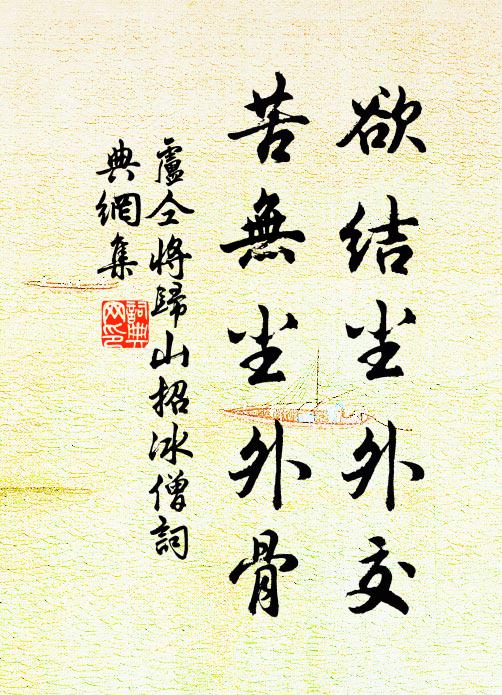 欲结尘外交
苦無尘外骨
盧仝将歸山招冰僧詞
典網集
詞典
网印